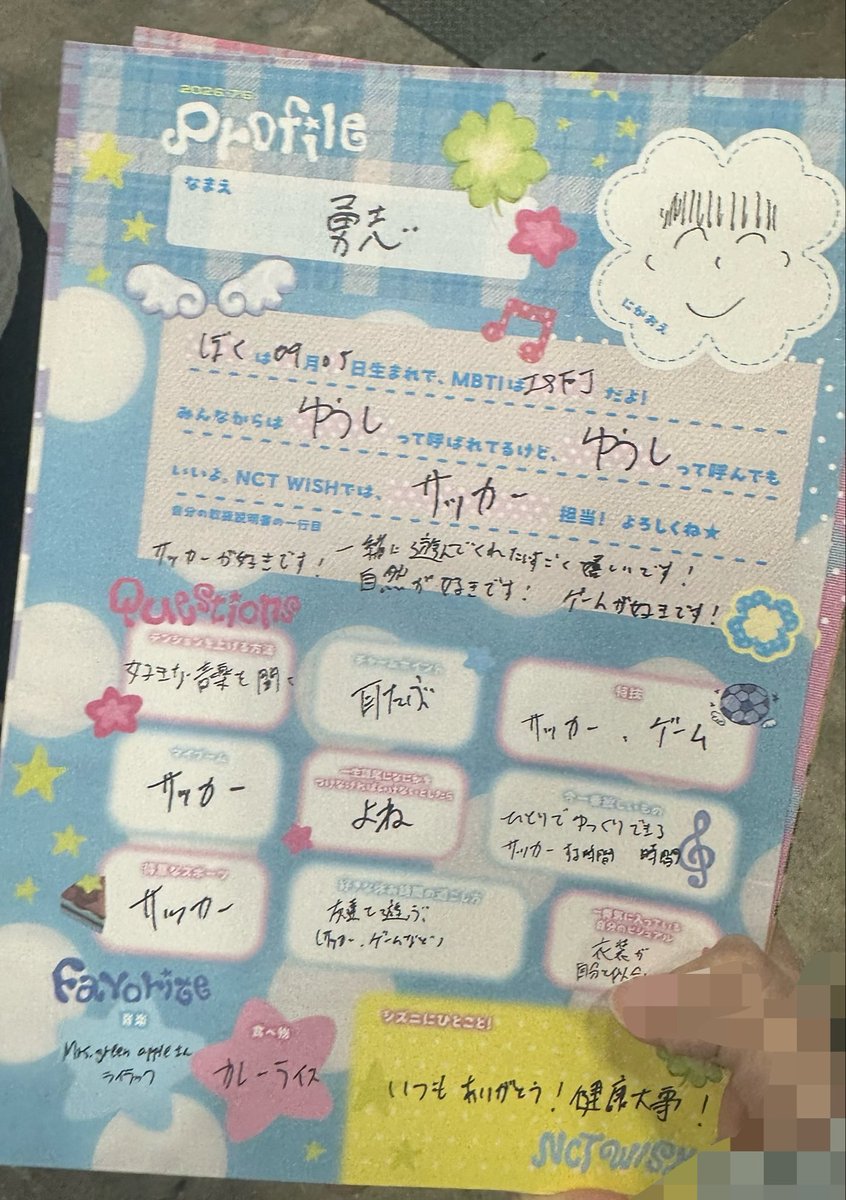 Profile
なまえ
勇志
にがおえ
ぼくは09月05日生まれで、MBTIはISFJだよ!
みんなからはゆうしって呼ばれてるけど、ゆうしって呼んでも
いいよ。NCT WISHでは、サッカー担当! よろしくね★
自分の取扱説明書の一行目
サッカーが好きです! 一緒に遊んでくれたらすごく嬉しいです!
自然が好きです! ゲームが好きです!
Questions
テンションを上げる方法
好きな音楽を聞く
チャームポイント
耳たぶ
特技
サッカー、ゲーム
マイブーム
サッカー
一生語尾になにかを
つけなければいけないとしたら
よね
今一番欲しいもの
ひとりでゆっくりできる
サッカーする時間 時間
得意なスポーツ
サッカー
好きな休み時間の過ごし方
友達と遊ぶ
一番気に入っている
自分のビジュアル
衣装が
Favorite
音楽
Mrs. green appleさん
ライラック
食べ物
カレーライス
シズニにひとこと!
いつもありがとう!健康大事!
NCT WISH